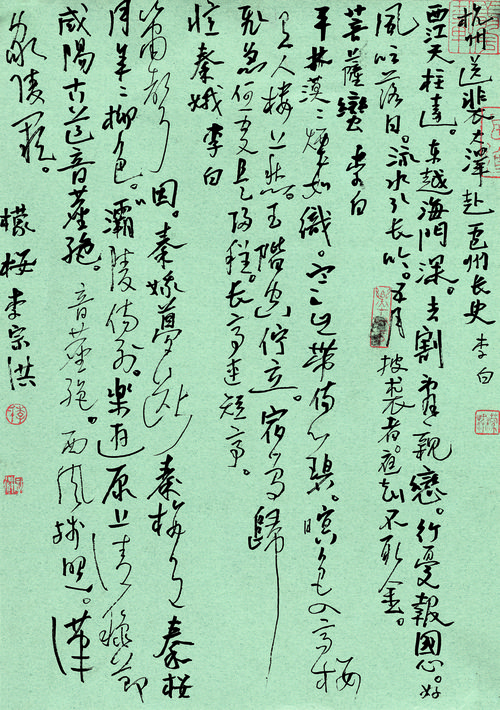 杭州送裴大澤赴庐州长史 李白
西江天柱遠。东越海門深。去割慈親戀。行憂報國心。好
風吹落日。流水引长吟。五月披裘者。应知不取金。
菩薩蠻 李白
平林漠漠烟如織。寒山一带傷心碧。暝色入高楼
有人楼上愁。玉階空佇立。宿鸟歸
飛急何處是归程。长亭連短亭。
忆秦娥 李白
箫声咽。秦娥夢断秦楼月。秦楼
月年年柳色。灞陵傷别。樂遊原上清秋節
咸陽古道音塵絶。音塵絶。西風残照。漢
家陵阙。
檬梅 李宗洪